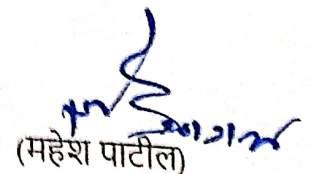 (महेश पाटील)